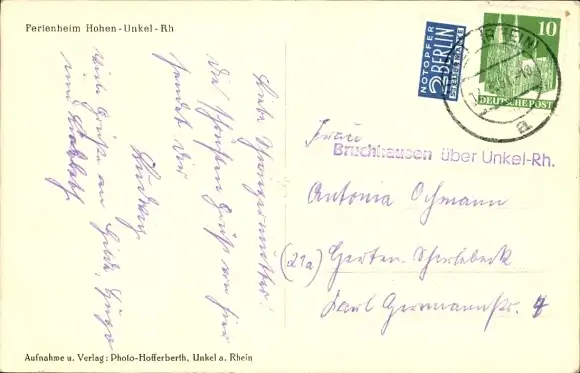 Ferienheim Hohen-Unkel-Rh
Liebe Schwiegermutter!
Die schönsten Grüße von hier
sendet Dir
Ludwig
Viele Grüße an Hilde, Hugo
und
NOTOPFER
2 BERLIN
STEUERMARKE
10
DEUTSCHE POST
(RHEIN)
a
Frau
Bruchhausen über Unkel-Rh.
Antonia Ochmann
(21a) Herten-Scherlebeck
Karl Germannstr. 4
Aufnahme u. Verlag: Photo-Hofferberth, Unkel a. Rhein